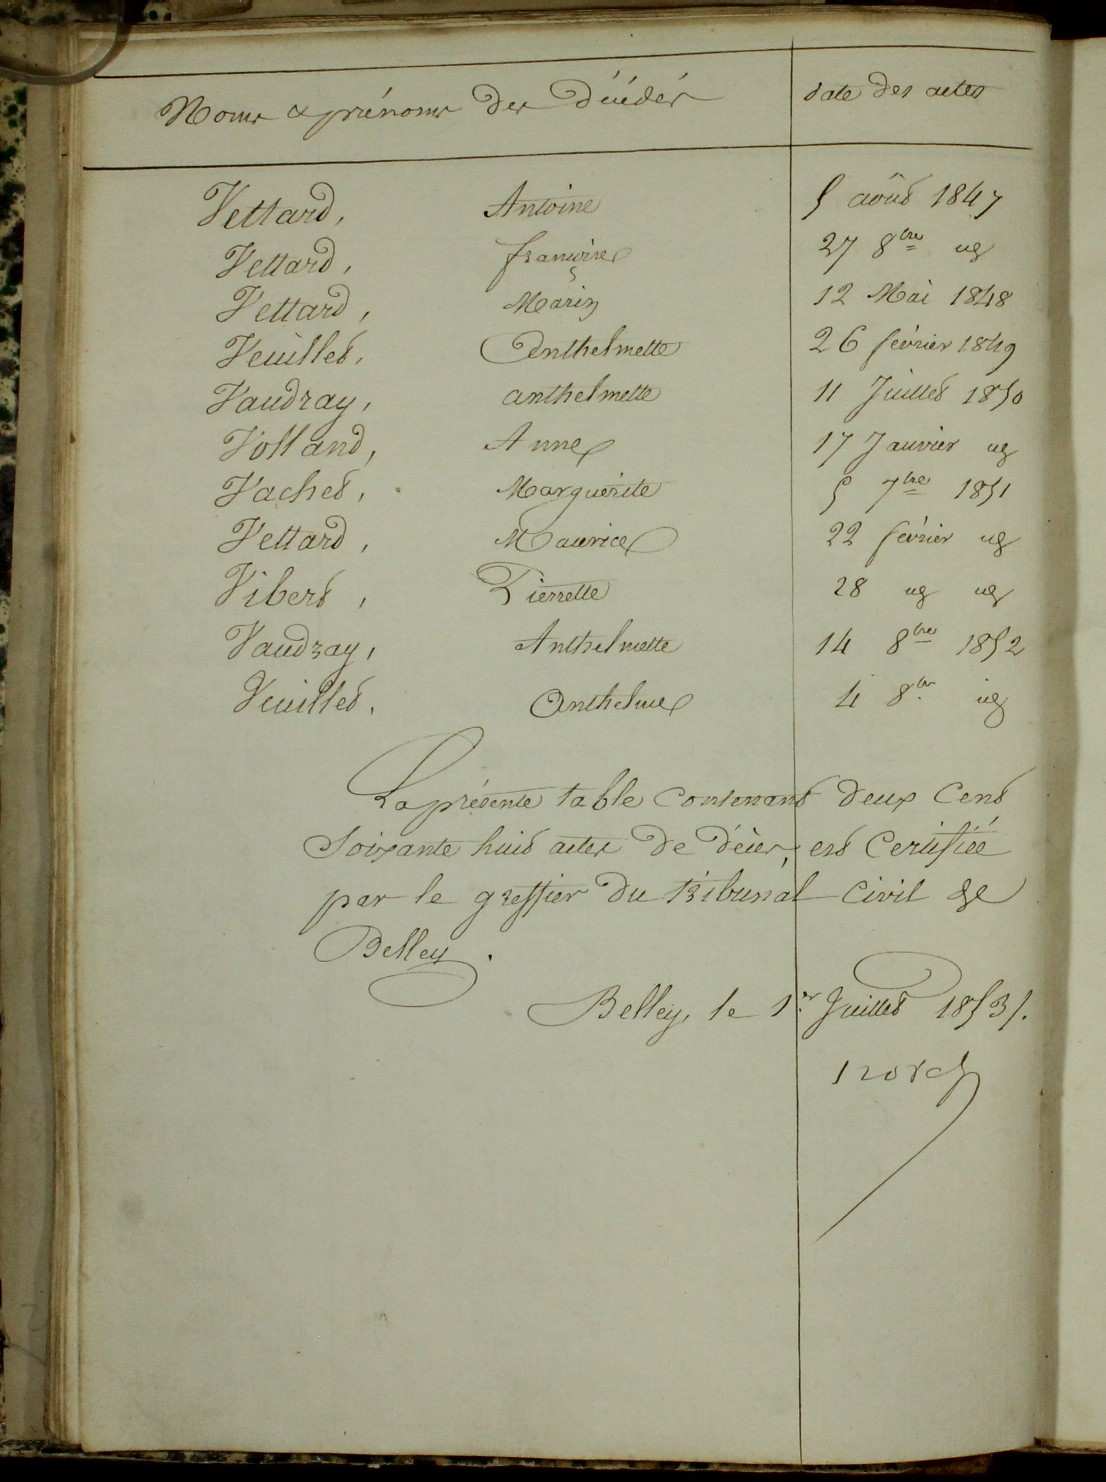 Noms & prénoms des Décédés date des actes
Vettard, Antoine 5 août 1847
Vettard, françoise 27 8bre id
Vettard, Marin 12 Mai 1848
Veuillet, Anthelmette 26 février 1849
Vaudray, anthelmette 11 Juillet 1850
Volland, Anne 17 Janvier id
Vachet, Marguerite 5 7bre 1851
Vettard, Maurice 22 février id
Vibert, Pierrette 28 id id
Vaudray, Anthelmette 14 8bre 1852
Veuillet, Anthelme 4 8bre id
La présente table Contenant deux Cent
Soixante huit actes de décès, est Certifiée
par le greffier du tribunal Civil de
Belley.
Belley, le 1er Juillet 1853.